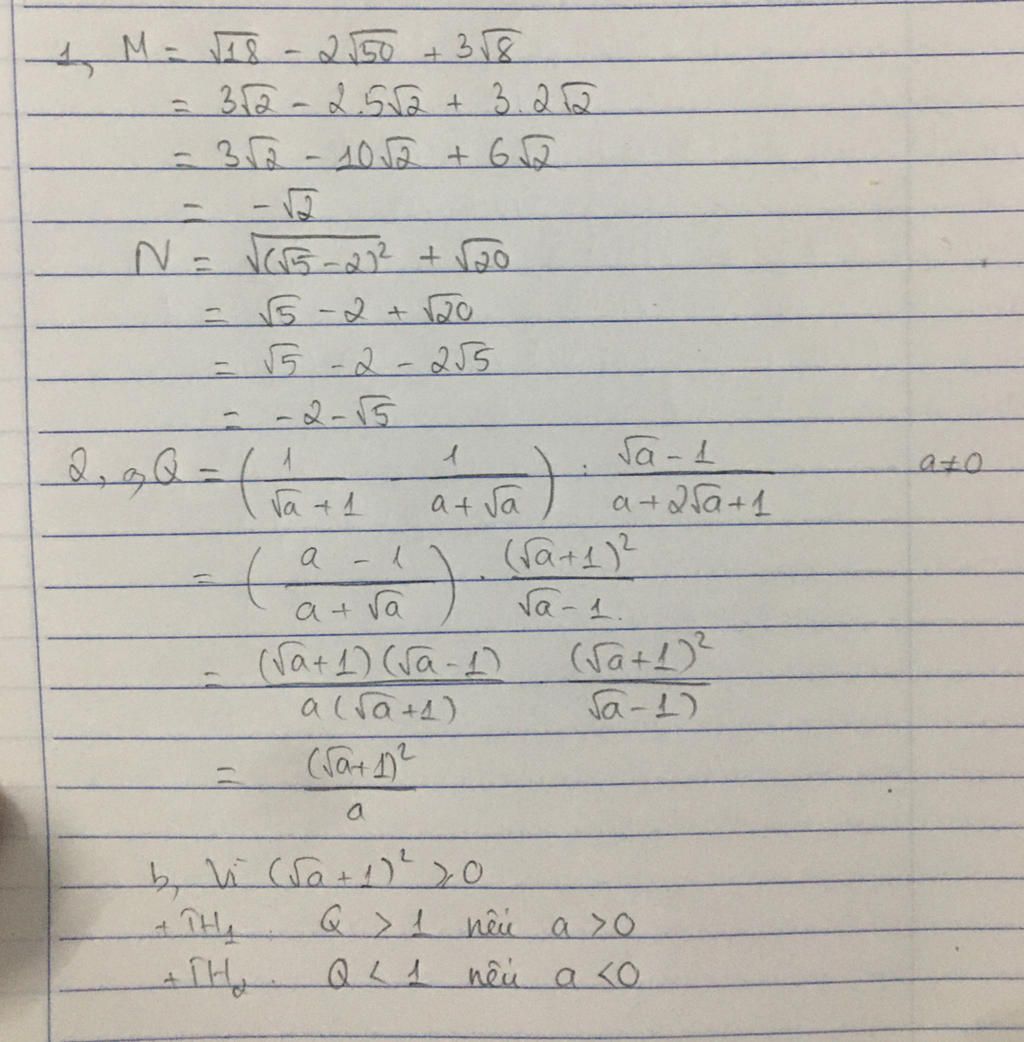 1, M = √18 - 2√50 + 3√8
= 3√2 - 2.5√2 + 3.2√2
= 3√2 - 10√2 + 6√2
= -√2
N = √((√5-2)²) + √20
= √5 - 2 + √20
= √5 - 2 - 2√5
= -2 - √5
2, a, Q = (1/(√a+1) - 1/(a+√a)) : (√a-1)/(a+2√a+1) a≠0
= ((a-1)/(a+√a)) . (√a+1)²/(√a-1.)
= (√a+1)(√a-1)/(a(√a+1)) (√a+1)²/(√a-1)
= (√a+1)²/a
b, Vì (√a+1)² ⩾ 0
+ TH₁. Q > 1 nếu a > 0
+ TH₂. Q < 1 nếu a < 0